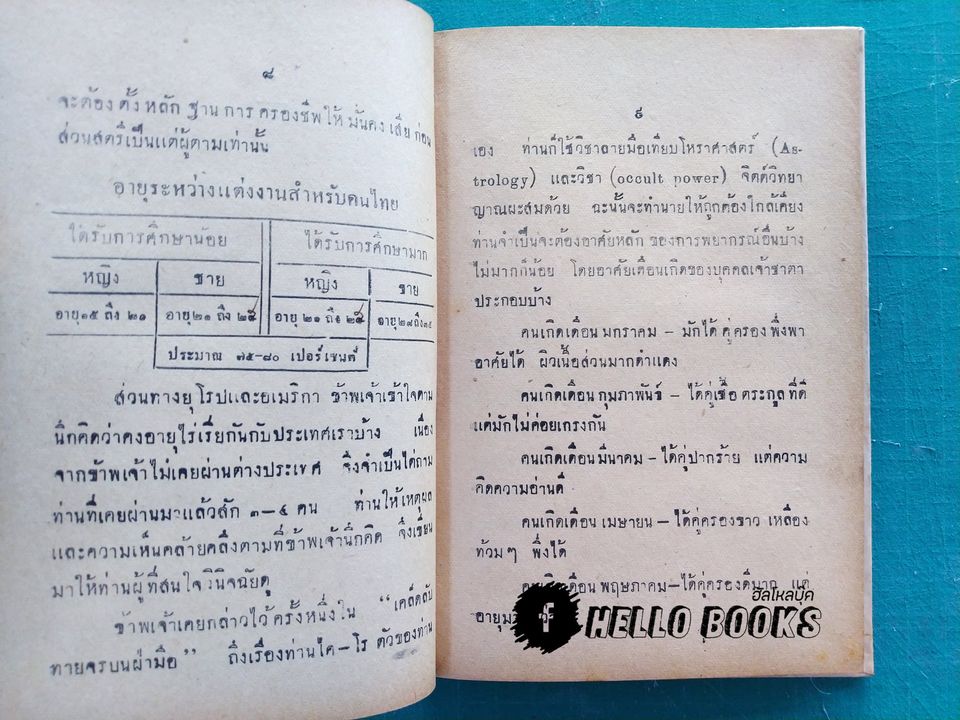 ๘
จะต้อง ตั้ง หลัก ฐาน การ ครองชีพให้ มั่นคง เสีย ก่อน
ส่วนสตรีเป็นแต่ผู้ตามเท่านั้น
อายุระหว่างแต่งงานสำหรับคนไทย
ได้รับการศึกษาน้อย ได้รับการศึกษามาก
หญิง ชาย หญิง ชาย
อายุ ๑๕ ถึง ๒๑ อายุ ๒๑ ถึง ๒๕ อายุ ๒๑ ถึง ๒๕ อายุ ๒๘ ถึง ๓๕
ประมาณ ๗๕–๘๐ เปอร์เซนต์
ส่วนทางยุโรปและอเมริกา ข้าพเจ้าเข้าใจตาม
นึกคิดว่าคงอายุไร่เรี่ยกันกับประเทศเราบ้าง เนื่อง
จากข้าพเจ้าไม่เคยผ่านต่างประเทศ จึงจำเป็นไต่ถาม
ท่านที่เคยผ่านมาแล้วสัก ๓–๔ คน ท่านให้เหตุผล
และความเห็นคล้ายคลึงตามที่ข้าพเจ้านึกคิด จึงเขียน
มาให้ท่านผู้ที่สนใจวินิจฉัยดู
ข้าพเจ้าเคยกล่าวไว้ ครั้งหนึ่งใน “เคล็ดลับ
ทายจรบนฝ่ามือ” ถึงเรื่องท่านไค–โร ตัวของท่าน
๙
เอง ท่านก็ใช้วิชาลายมือเทียบโหราศาสตร์ (As-
trology) และวิชา (occult power) จิตต์วิทยา
ญาณผะสมด้วย ฉะนั้นจะทำนายให้ถูกต้องใกล้เคียง
ท่านจำเป็นจะต้องอาศัยหลัก ของการพยากรณ์อื่นบ้าง
ไม่มากก็น้อย โดยอาศัยเดือนเกิดของบุคคลเจ้าชาตา
ประกอบบ้าง
คนเกิดเดือน มกราคม – มักได้ คู่ครอง พึ่งพา
อาศัยได้ ผิวเนื้อส่วนมากดำแดง
คนเกิดเดือน กุมภาพันธ์ – ได้คู่เชื้อ ตระกูล ที่ดี
แต่มักไม่ค่อยเกรงกัน
คนเกิดเดือน มีนาคม – ได้คู่ปากร้าย แต่ความ
คิดความอ่านดี
คนเกิดเดือน เมษายน – ได้คู่ครองขาว เหลือง
ท้วม ๆ พึ่งได้
เดือน พฤษภาคม – ได้คู่ครองดีมาก แต่
ฮัลโหลบุ๊ค
f HELLO BOOKS